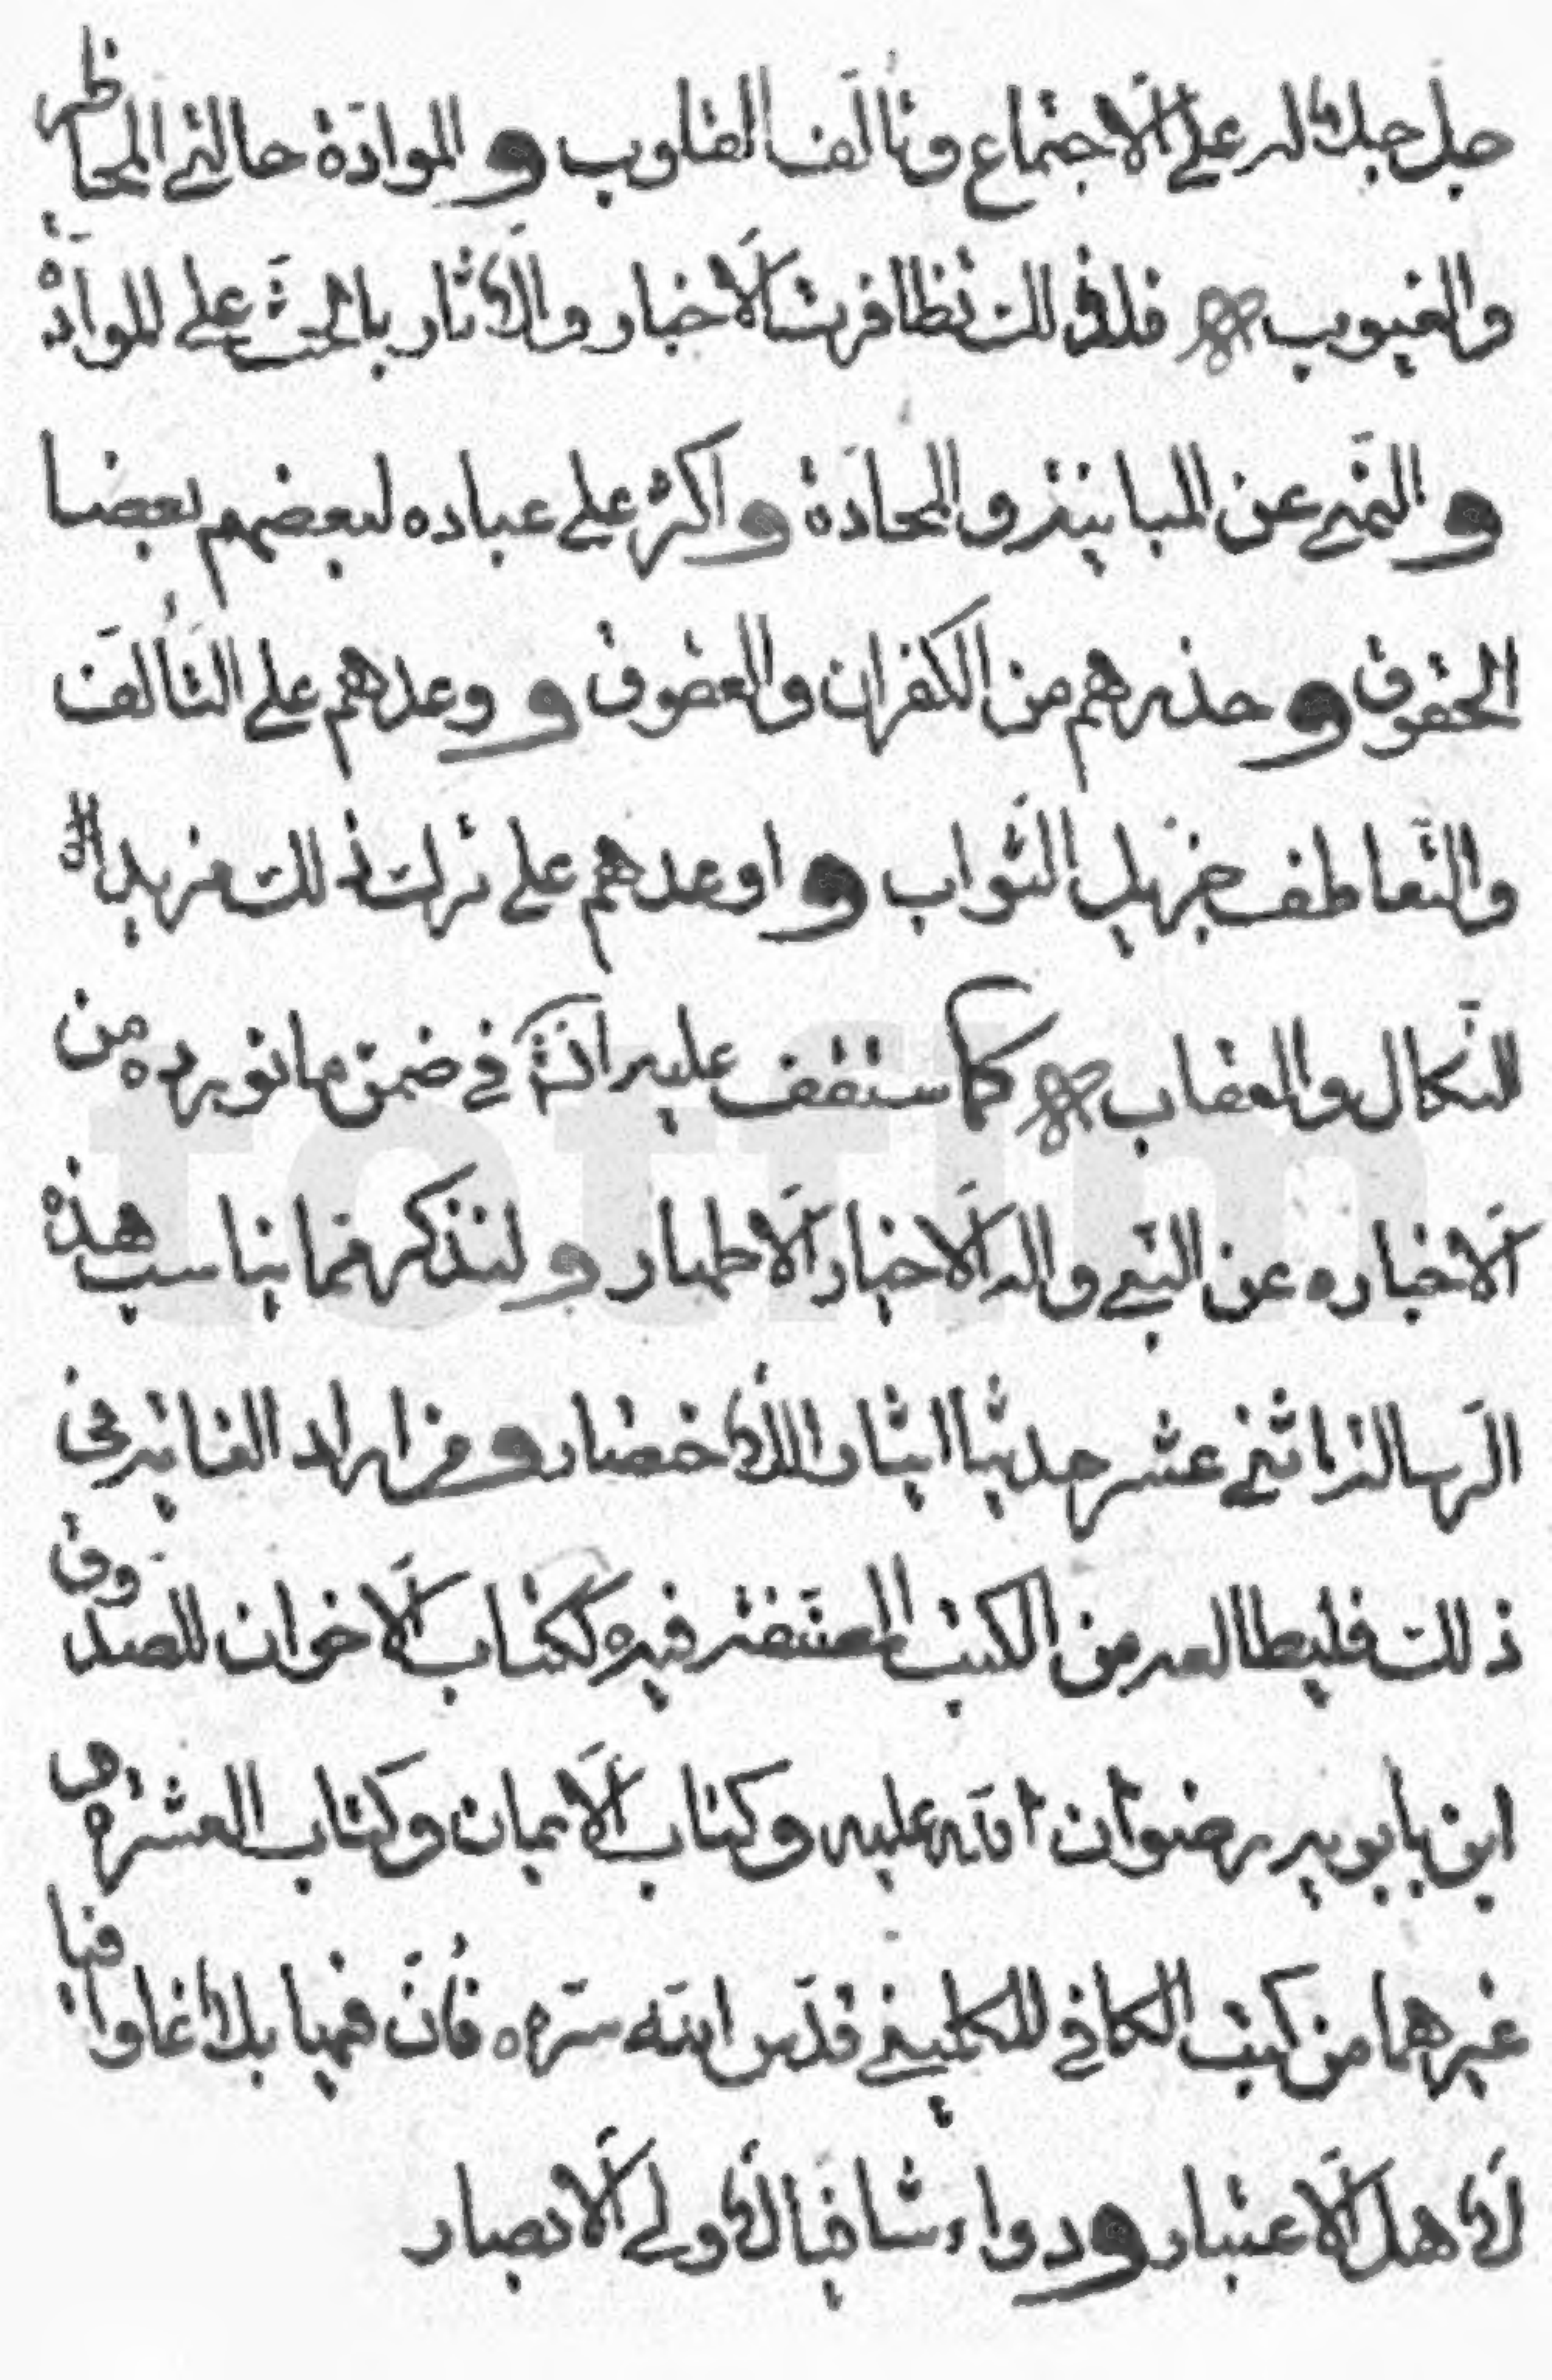 جل جبلاله على الاجتماع وتألف القلوب و الموادة حالتي المحاظر
والغيوب فلذلك تظافرت الاخبار والاثار بالحث على الموادة
و النهي عن المباينة والمحادة و اكد على عباده لبعضهم بعضا
الحقوق و حذرهم من الكفران والعقوق و وعدهم على التألف
والتعاطف جزيل الثواب و اوعدهم على ترك ذلك مزيدا
النكال والعقاب كما ستقف عليه انشأ في ضمن ما نورده من
الاخباره عن النبي واله الاخيار الاطهار و لنذكر مما يناسب هذه
الرسالة اثني عشر حديثا ايثارا للاختصار و من اراد الغاية في
ذلك فليطالعه من الكتب المصنفة فيه ككتاب الاخوان للصدوق
ابن بابويه رضوان الله عليه وكتاب الايمان وكتاب العشرة و
غيرهما من كتب الكافي للكليني قدس الله سره فان فيها بلاغا وافيا
لاهل الاعتبار و دواء شافيا لاولي الابصار
totfim